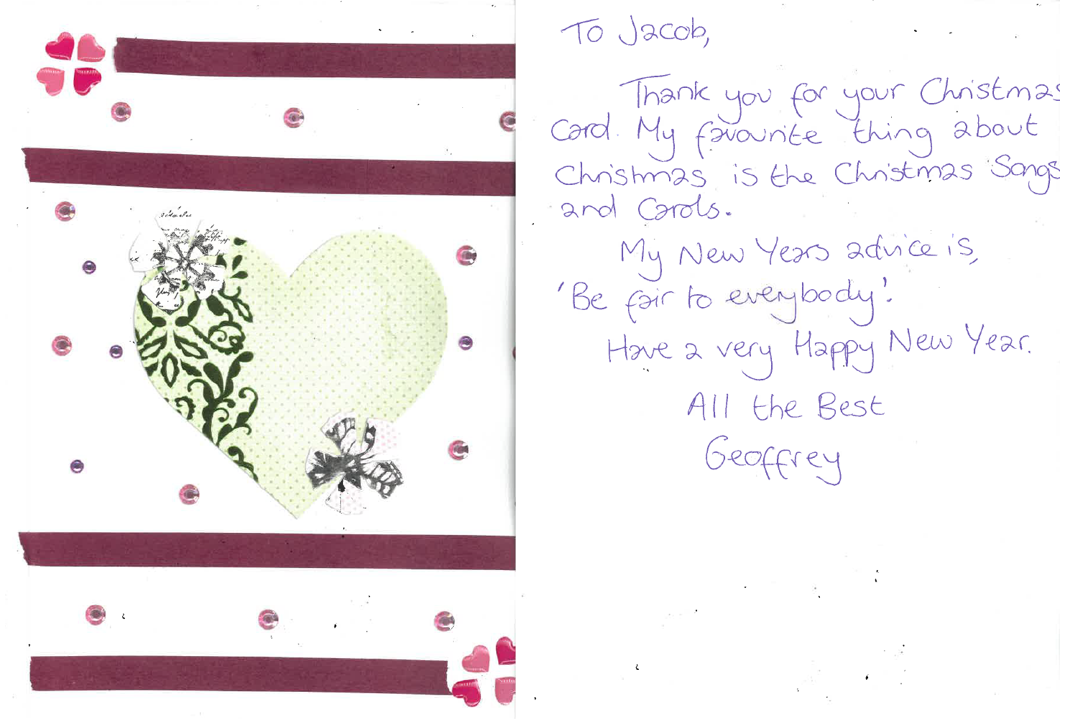 To Jacob,
Thank you for your Christmas
Card. My favourite thing about
Christmas is the Christmas Songs
and Carols.
My New Years advice is,
'Be fair to everybody'.
Have a very Happy New Year.
All the Best
Geoffrey